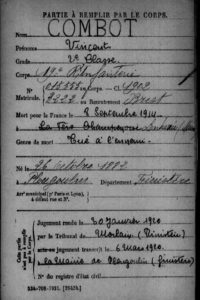 PARTIE À REMPLIR PAR LE CORPS.
COMBOT
Nom
Prénoms Vincent
Grade 2e Classe
Corps 19e Infanterie
N° au Corps. — Cl. 1902
Matricule. 2221 au Recrutement Brest
Mort pour la France le 8 Septembre 1914
à
Genre de mort Tué à l'ennemi
Né le 26 Octobre 1882
à Plougoulm Département Finistère
Arrt municipal (pr Paris et Lyon),
à défaut rue et N°.
Jugement rendu le 30 Janvier 1920
par le Tribunal de Morlaix (Finistère)
acte ou jugement transcrit le 6 Mars 1920
à la Mairie de Plougoulm (Finistère)
N° du registre d'état civil